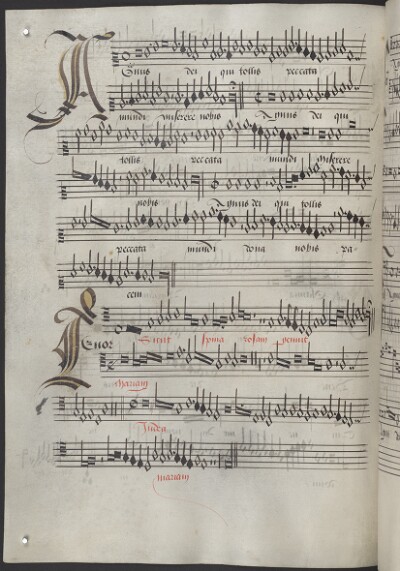 Agnus dei qui tollis peccata
mundi miserere nobis Agnus dei qui
tollis peccata mundi miserere
nobis Agnus dei qui tollis
peccata mundi dona nobis pa-
cem
Tenor Sicut spina rosam genuit
Mariam
Judea
mariam